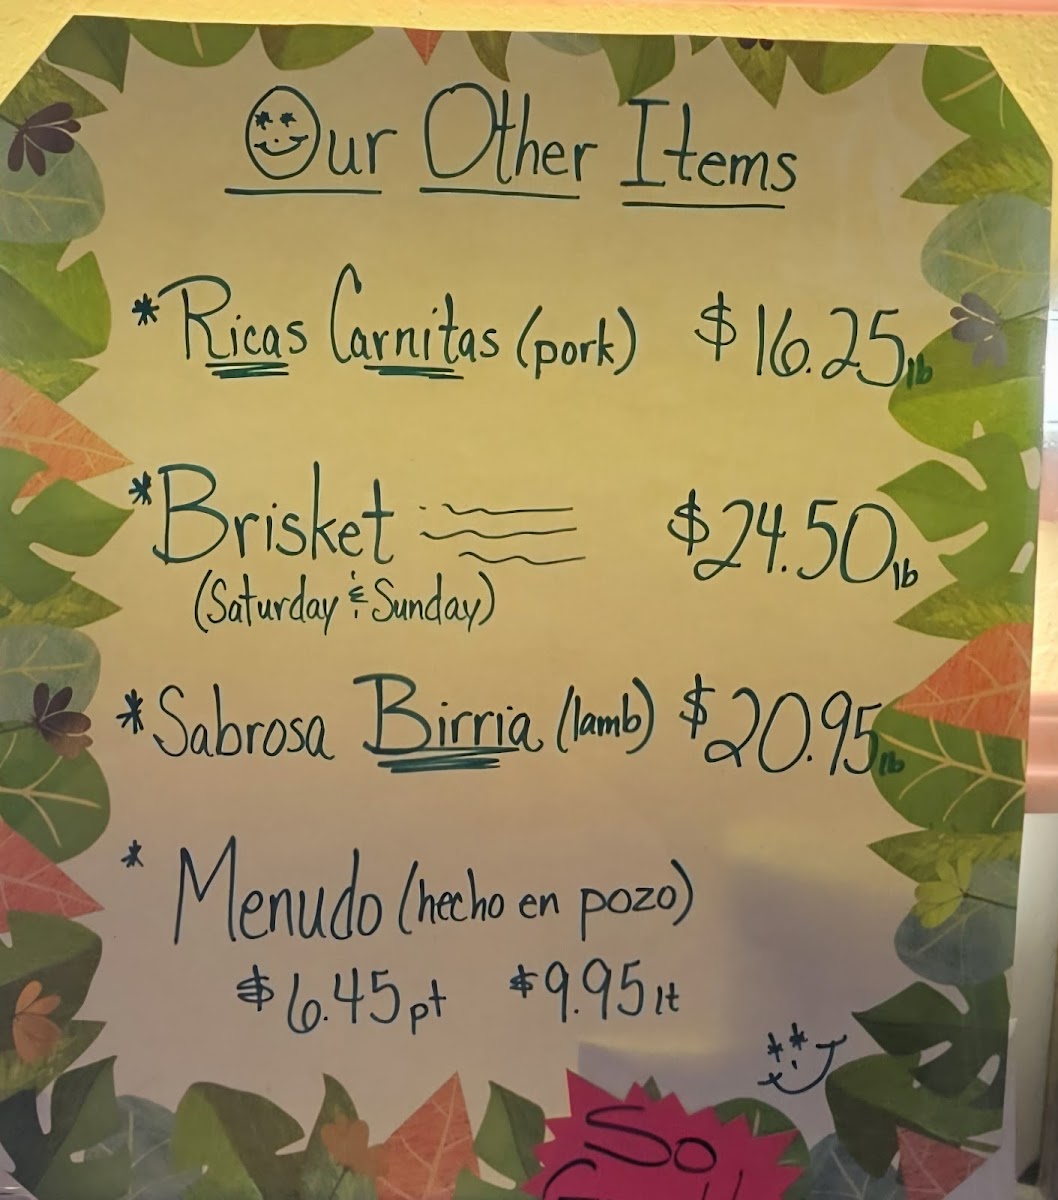 Our Other Items
*Ricas Carnitas (pork) $16.25 lb
*Brisket $24.50 lb
(Saturday & Sunday)
*Sabrosa Birria (lamb) $20.95 lb
* Menudo (hecho en pozo)
$6.45 pt $9.95 lt
So